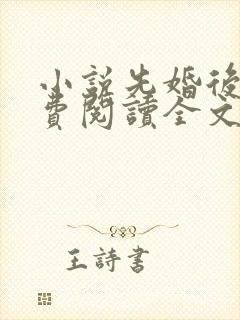 小說先婚後
費閱讀全文
王詩書